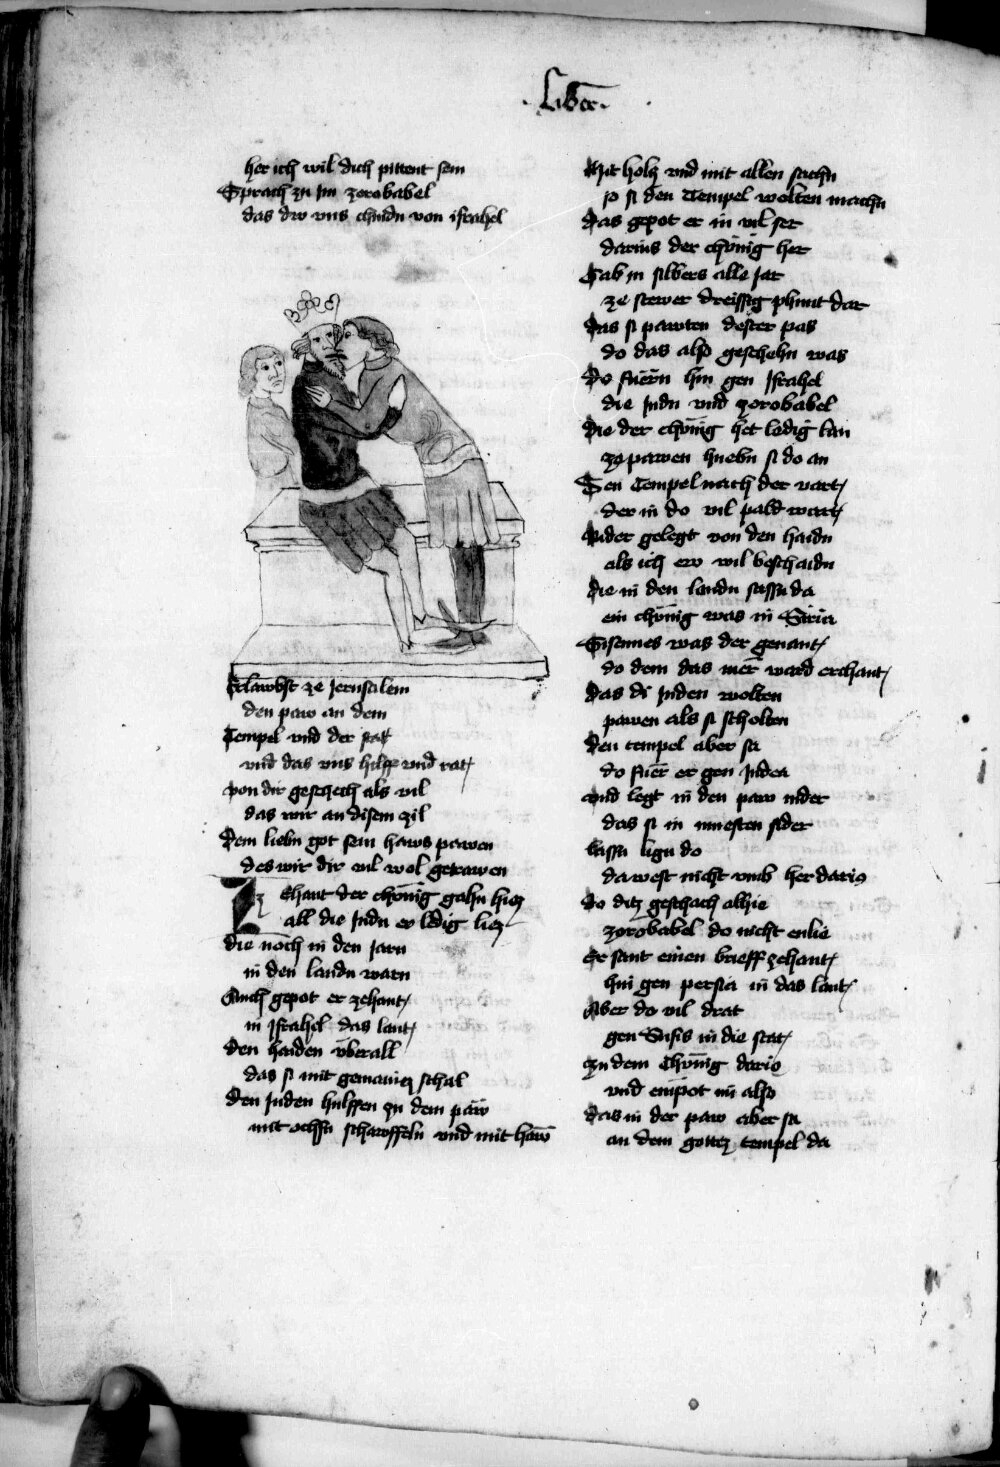 .Liber.
her ich wil dich pittent sein
Sprach zu im zorobabel
das dw vns chindn von israhel
Erlawbst ze Jerusalem
den paw an dem
Tempel vnd der stat
vnd das vns hilff vnd rat
von dir geschech als vil
das wir an disem zil
dem liebn got sein haws pawen
des wir dir vil wol getrawen
Zehant der chönig gahn hiez
all die Judn er ledig liez
die noch in den Jarn
in den landn warn
Auch gepot er zehant
in Israhel das lant
den haiden vberall
das si mit gemainem schal
den Juden hulffen zu dem paw
mit ochsn schawffeln vnd mit haw
Mit holtz vnd mit allen sachn
so si den Tempel wolten machn
das gepot er in vil ser
darius der chönig her
Gab in silbers alle Jar
ze stewer dreissig phunt dar
das si pawten dester pas
do das also geschehn was
do fuern hin gen Israhel
die Judn vnd zorobabel
die der chönig het ledig lan
ze pawen huebn si do an
Den Tempel nach der vart
der in do vil pald wart
Nider gelegt von den haidn
als ich ew wil beschaidn
die in den landn sassn da
ein chönig was in Siria
Sisennes was der genant
do dem das mer ward erchant
das di Juden wolten
pawen als si scholten
den tempel aber sa
do fuer er gen Judea
vnd legt in den paw nider
das si in muesten sider
lassn lign do
da west nicht vmb her dario
do ditz geschach alhie
zorobabel do nicht enlie
Er sant einen brieff zehant
hin gen persia in das lant
Aber do vil drat
gen Susis in die stat
zu dem Chönig dario
vnd enpot im also
das in der paw aber sa
an dem gottez tempel da